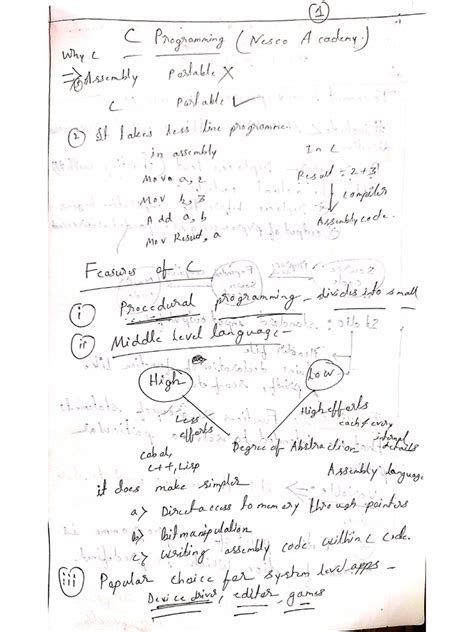 1
C Programming (Neso Academy)
Why C
⇒ ① Assembly Portable X
C Portable ✓
② It takes less line programmer
in assembly In C
Mov a, 2 Result = 2+3;
Mov b, 3 ↓ Compiler
Add a, b Assembly code.
Mov Result, a
Feasures of C
i Procedural programming - divides into small
ii Middle Level language -
High Low
Less efforts High efforts
each & every internal details
Degree of Abstraction
Cobol, C++, Lisp Assembly language
it does make simpler
a) Direct access to memory through pointers
b) bit manipulation
c) Writing assembly code within C code.
iii Popular choice for system level apps -
Device driver, editor, games